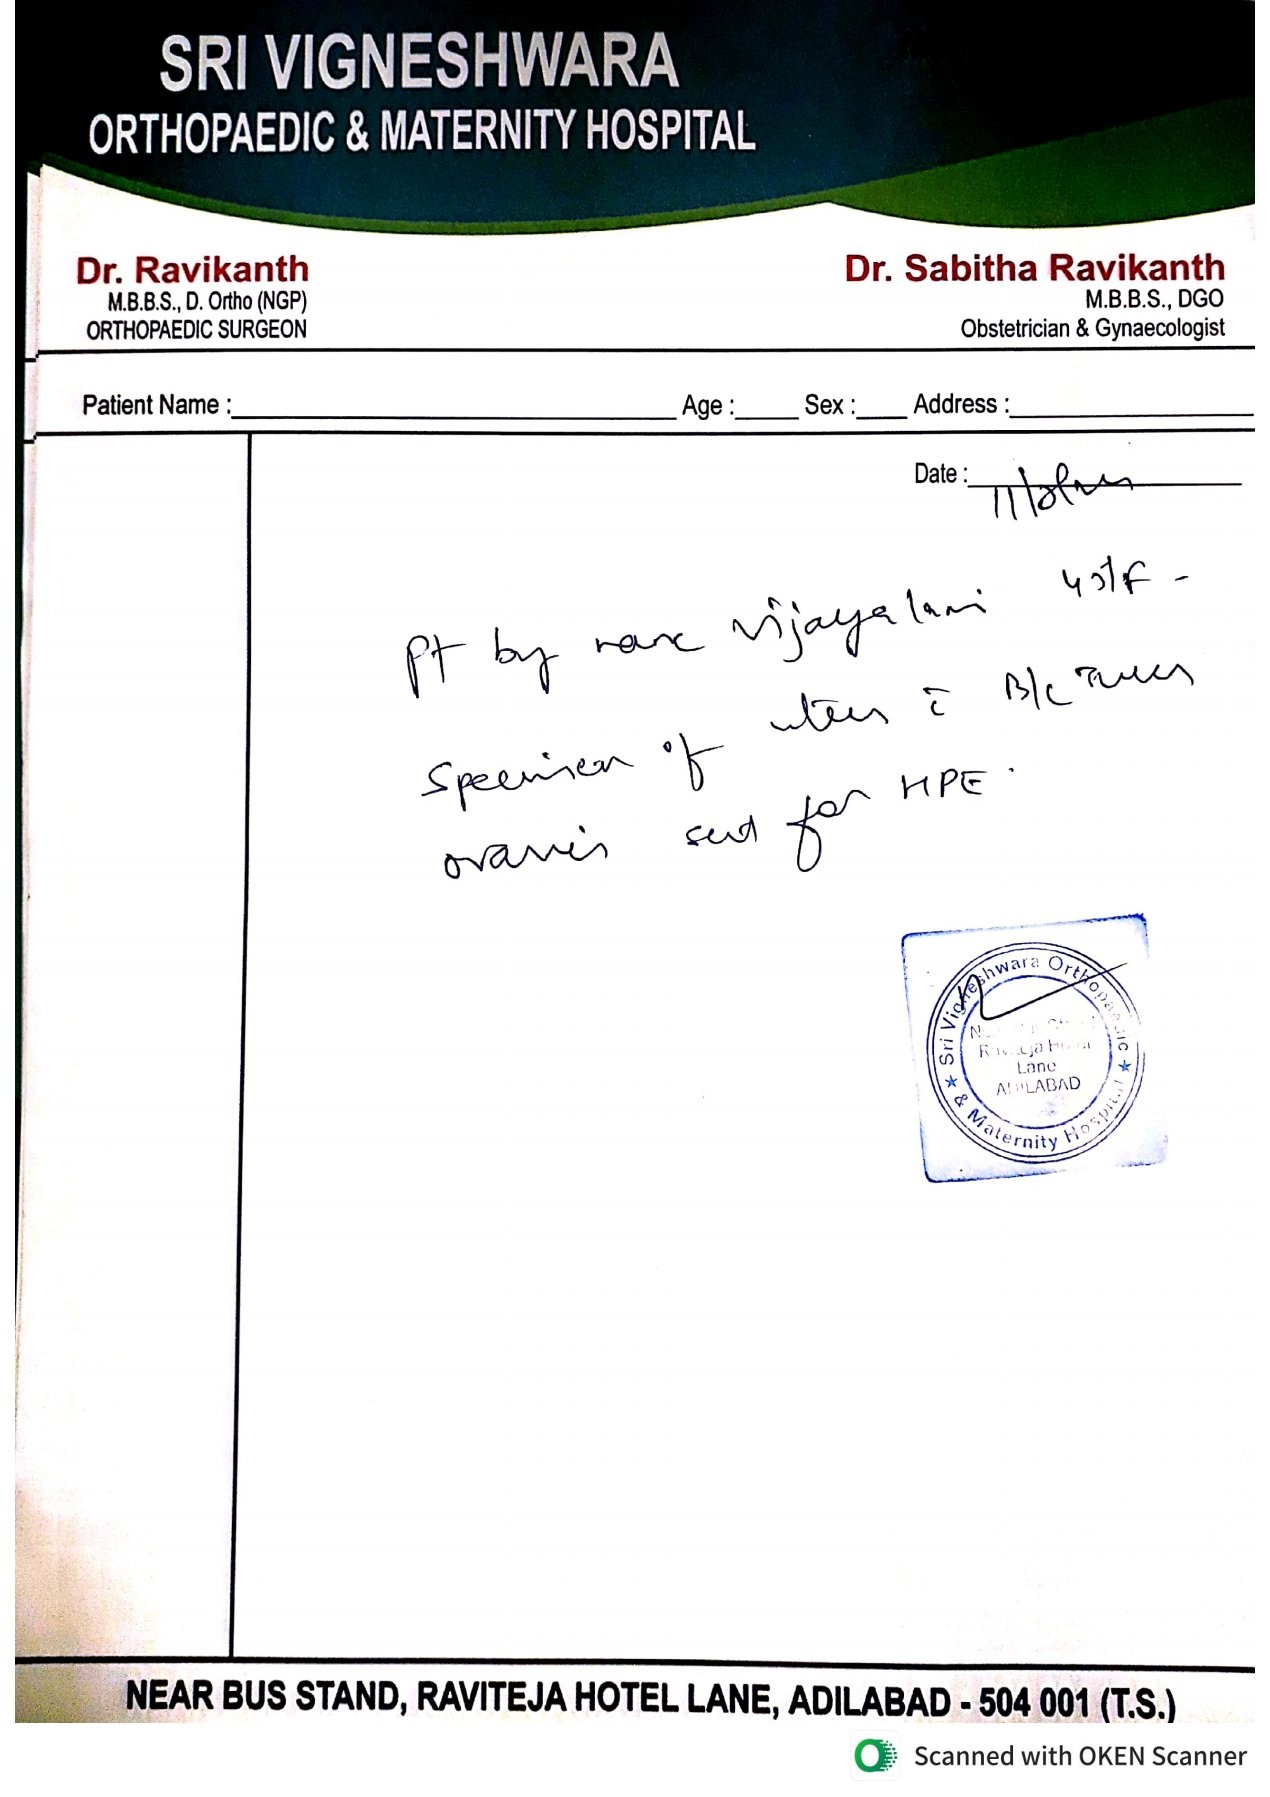 SRI VIGNESHWARA
ORTHOPAEDIC & MATERNITY HOSPITAL
Dr. Ravikanth
M.B.B.S., D. Ortho (NGP)
ORTHOPAEDIC SURGEON
Dr. Sabitha Ravikanth
M.B.B.S., DGO
Obstetrician & Gynaecologist
Patient Name : Age : Sex : Address :
Date :
Pt by name
specimen of uterus c̄ B/L
ovaries sent for HPE.
Sri Vigneshwara Orthopaedic
& Maternity Hospital
Raviteja Hotel
Lane
ADILABAD
NEAR BUS STAND, RAVITEJA HOTEL LANE, ADILABAD - 504 001 (T.S.)
Scanned with OKEN Scanner